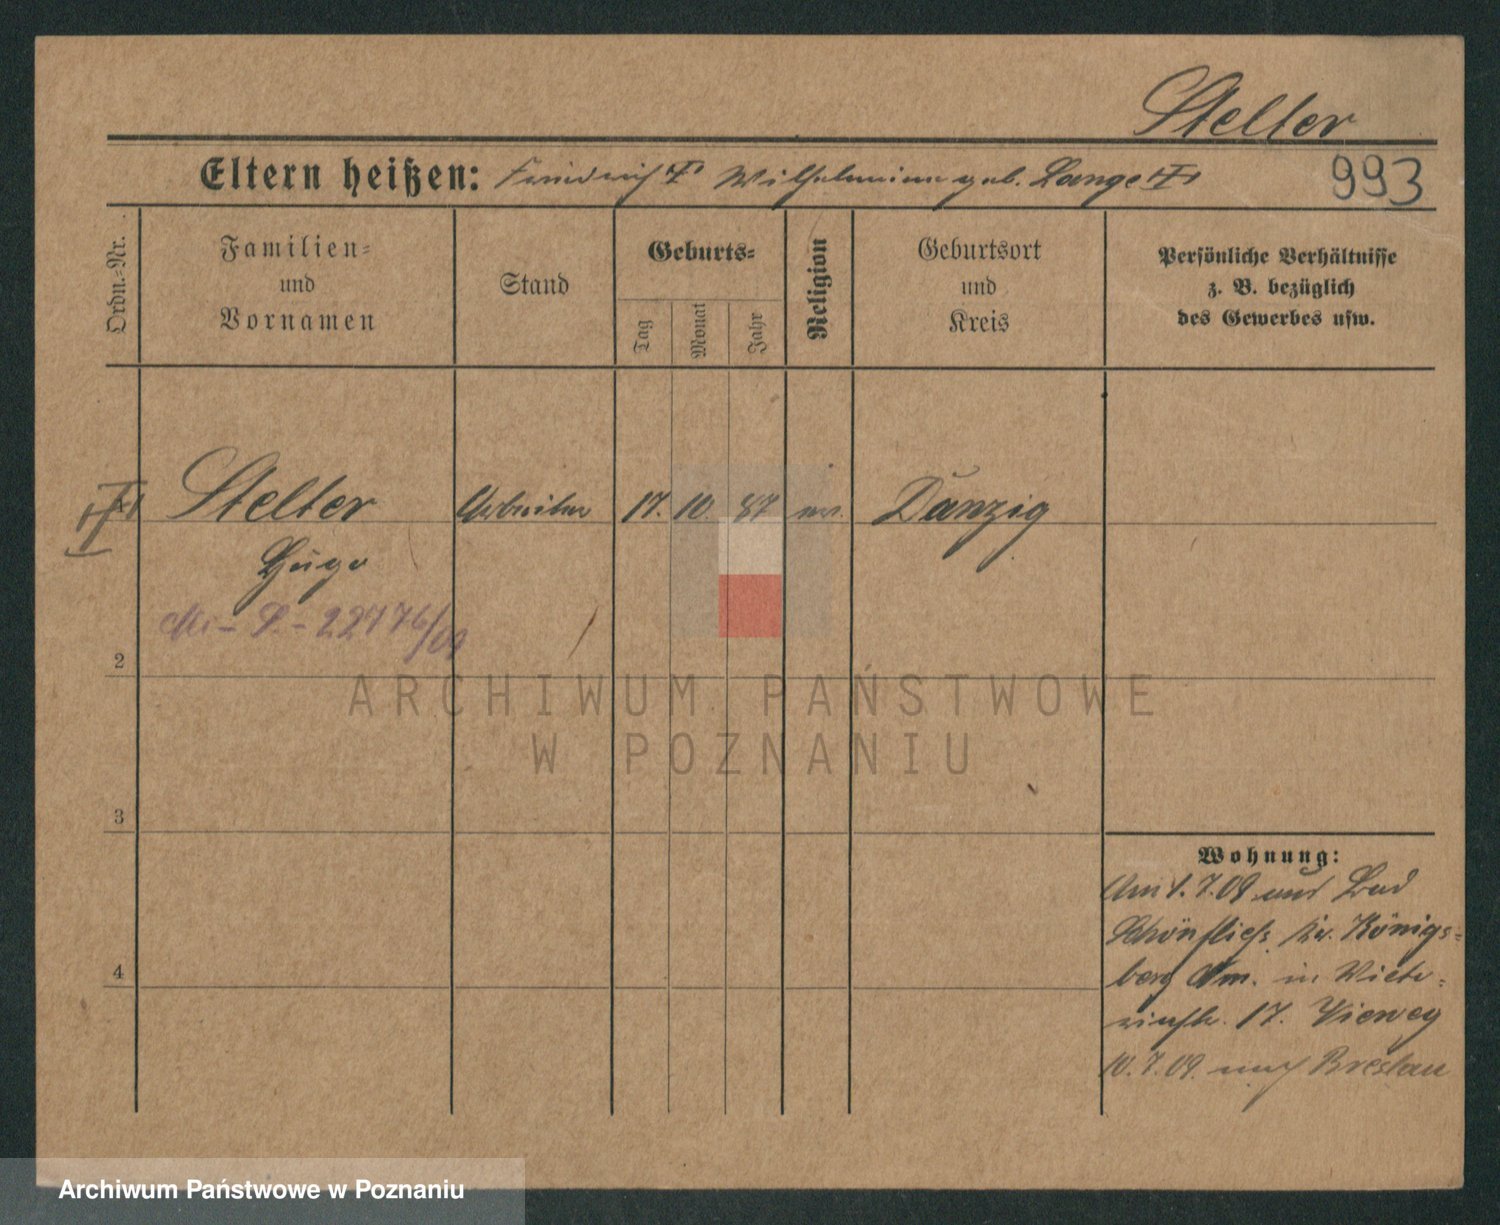 Stelter
Eltern heißen: Friedrich Wilhelmine geb. Lange
993
Ordn.-Nr.
Familien-
und
Vornamen
Stand
Geburts-
Tag
Monat
Jahr
Religion
Geburtsort
und
Kreis
Persönliche Verhältnisse
z. B. bezüglich
des Gewerbes usw.
Stelter Arbeiter 17. 10. 87 ev. Danzig
Hugo
22776/09
2
3
4
Wohnung:
Am 1.7.09 aus Bad
Schönfließ Kr. Königs-
berg Nm. in
17. Vieweg
10.7.09. nach Breslau
ARCHIWUM PAŃSTWOWE
W POZNANIU
Archiwum Państwowe w Poznaniu